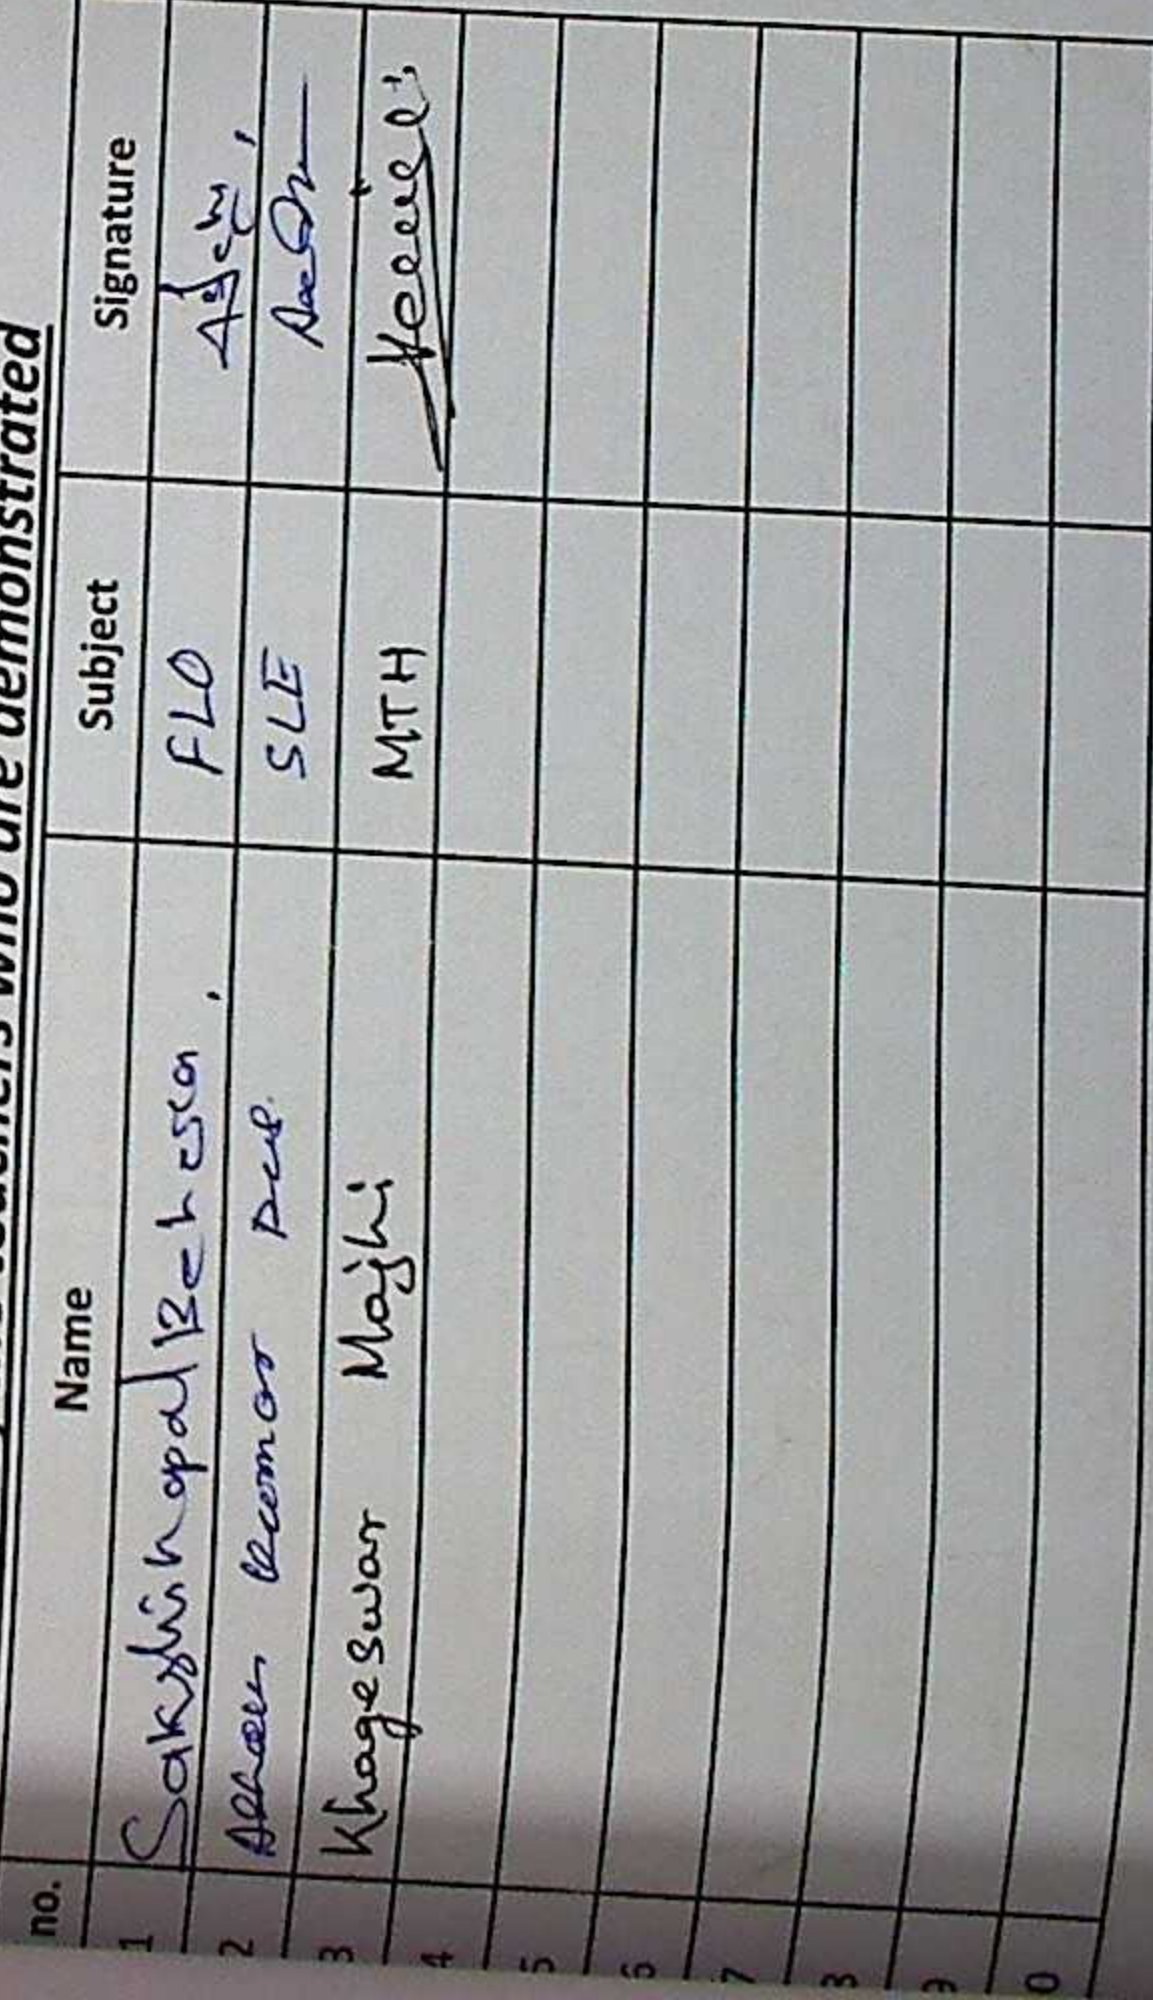 teachers who are demonstrated
no. Name Subject Signature
1 Sakshinhopal Behera. FLO
2 Kumar SLE
3 Khageswar Majhi MTH
4
5
6
7
8
9
0